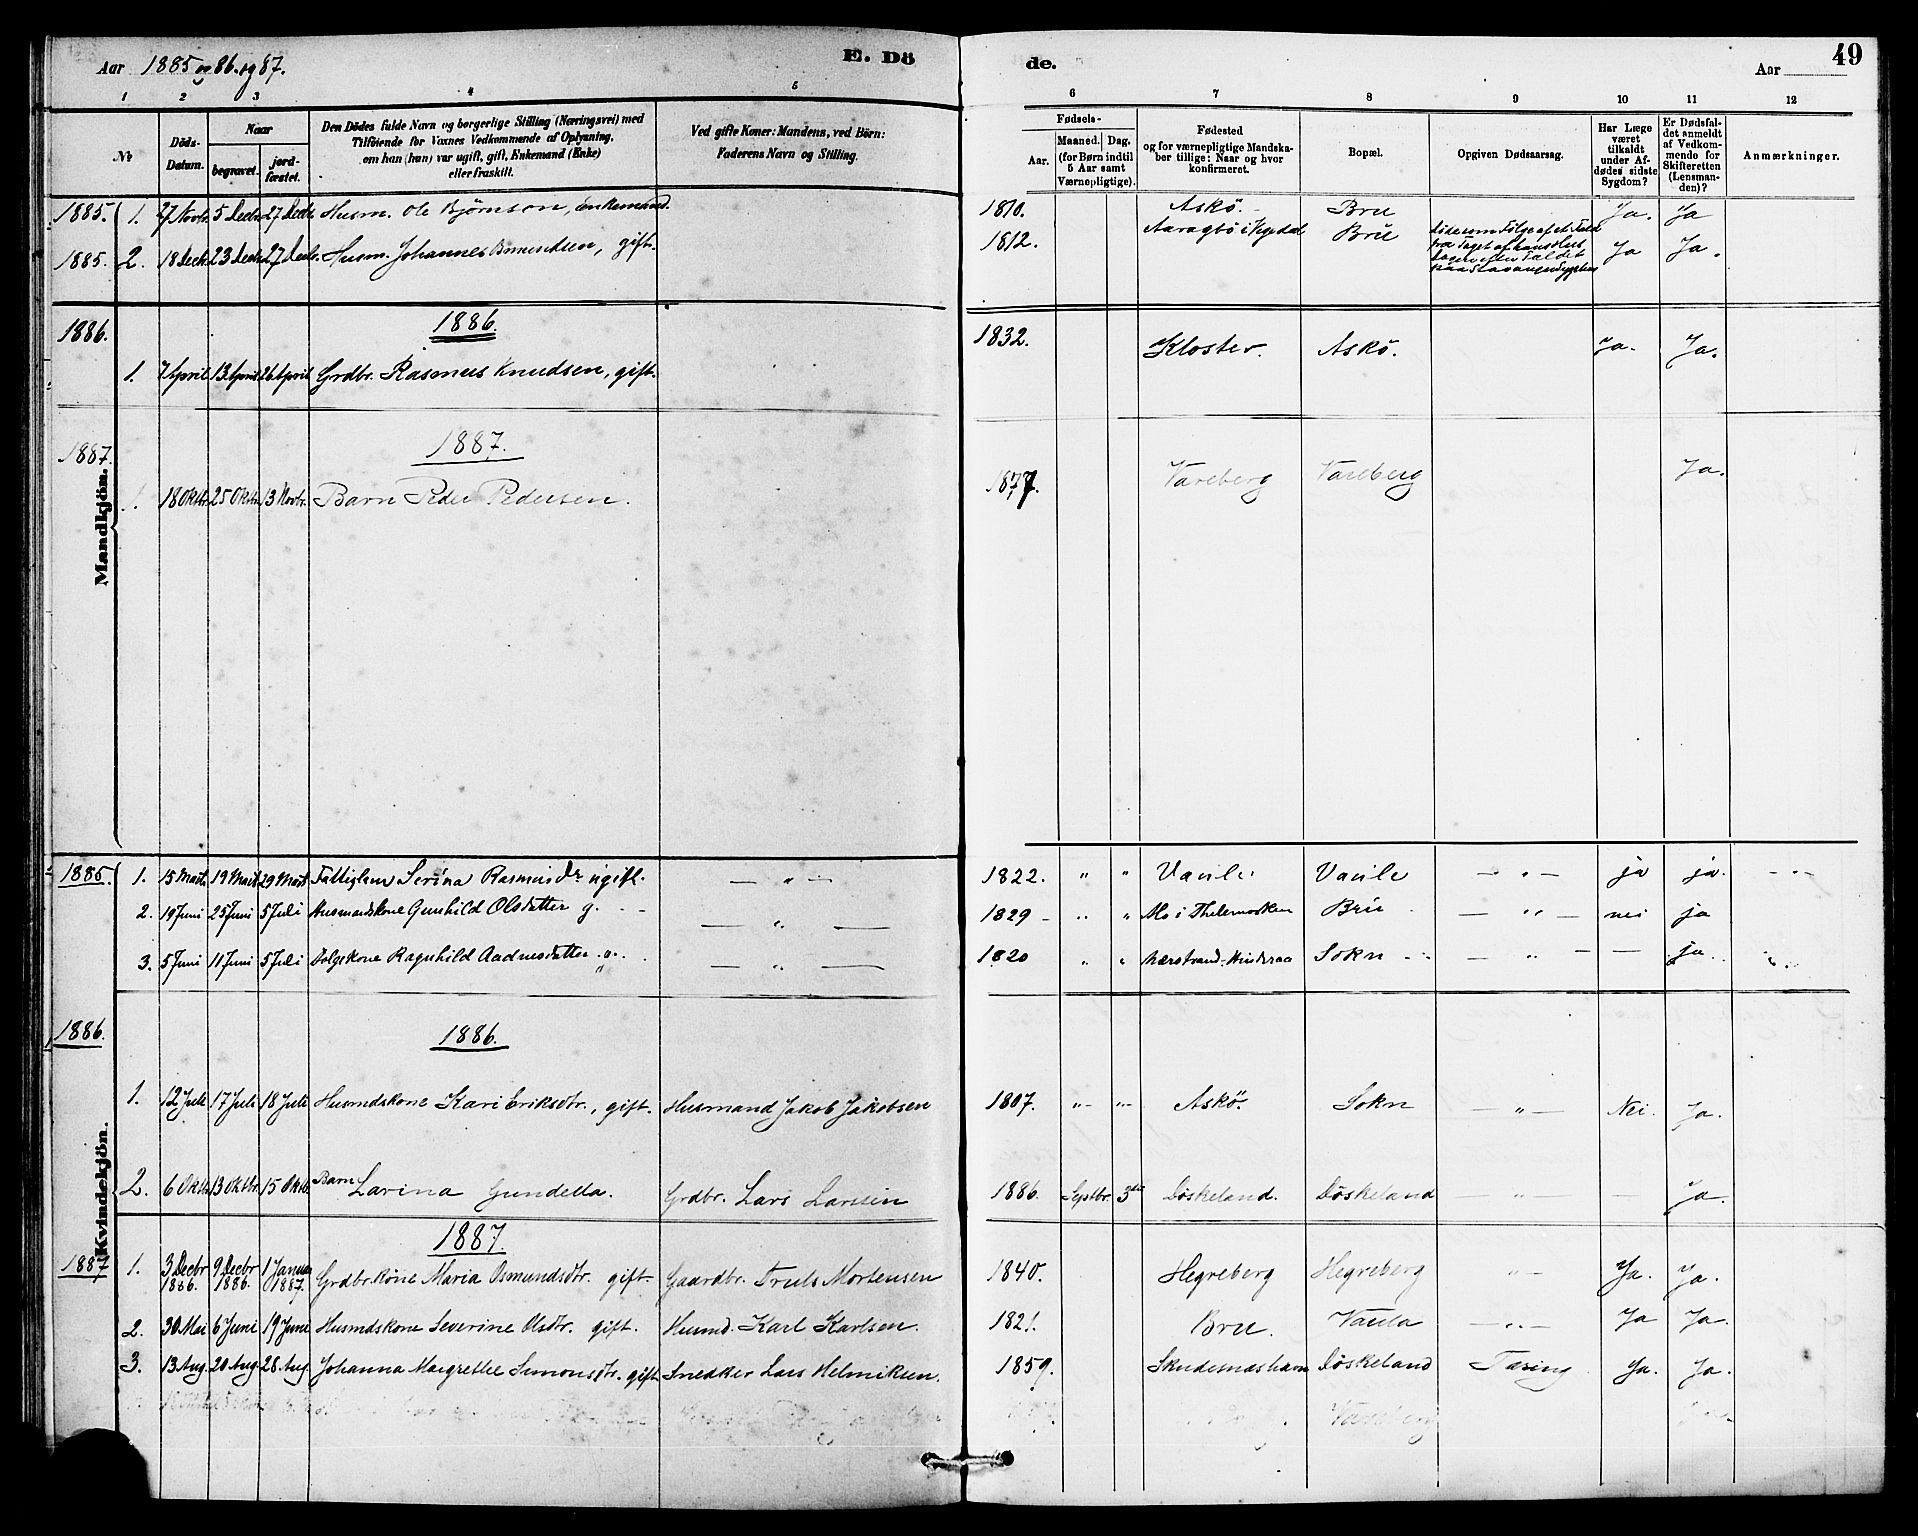 Aar 1885 og 86. og 87.
E. Dö
de.
Aar
49
1 2 3 4 5 6 7 8 9 10 11 12
No
Döds-Datum.
Naar
begravet.
jord-fæstet.
Den Dödes fulde Navn og borgerlige Stilling (Næringsvei) med
Tilföiende for Voxnes Vedkommende af Oplysning,
om han (hun) var ugift, gift, Enkemand (Enke)
eller fraskilt.
Ved gifte Koner: Mandens, ved Börn:
Faderens Navn og Stilling.
Fødsels-
Aar.
Maaned. Dag.
(for Børn indtil
5 Aar samt
Værnepligtige).
Fødested
og for værnepligtige Mandska-
ber tillige: Naar og hvor
konfirmeret.
Bopæl.
Opgiven Dødsaarsag.
Har Læge
været
tilkaldt
under Af-
dødes sidste
Sygdom?
Er Dødsfal-
det anmeldt
af Vedkom-
mende for
Skifteretten
(Lensman-
den)?
Anmærkninger.
Mandkjön.
1885. 1. 27 Novbr 5 Decbr 27 Decbr Husm. Ole Björnson, Enkemand. 1810. Askö. Bru Ja. Ja
1885. 2. 18 Decbr 23 Decbr 27 Decbr. Husm. Johannes gift. 1812. Bru Döde som Fölge af et Fald
fra Taget af hans Hus
Dagen efter Faldet
paa Stavanger Sygehus Ja Ja.
1886. 1886.
1. 7 April 13 April 26 April Grdbr. Rasmus Knudsen, gift. 1832. Kloster. Askö. Ja. Ja.
1887. 1887.
1. 18 Oktbr. 25 Oktbr 13 Novbr. Barn Peder Pedersen. 1877. Vareberg Vareberg Ja.
Kvindekjön.
1885. 1. 15 Marts 19 Marts 29 Marts Fattiglem Serina Rasmusdr ugift. — „ — 1822. „ „ — „ — ja ja. — „ —
2. 19 Juni 25 Juni 5 Juli Husmandskone Gunhild Olsdatter g. — „ — 1829 „ „ Mo i Thelemarken Bru — „ — nei ja
3. 5 Juni 11 Juni 5 Juli Ragnhild Aadnesdatter „ — „ — 1820 „ „ Nærstrand Sokn — „ — — ja.
1886. 1886.
1. 12 Juli 17 Juli 18 Juli Husmdskone Kari Eriksdtr., gift. Husmand Jakob Jakobsen 1807. „ „ Askö. Sokn — „ — Nei. Ja.
2. 6 Oktbr 13 Oktbr. 15 Oktb. Barn Larina Gundella. Grdbr. Lars Larssen 1886. Septbr. 3die Döskeland. Döskeland — „ — — Ja.
1887 1887.
1. 3 Decbr 1886. 9 Decbr 1886. 1 Januar 1887. Grdbr.kone Maria Osmundsdtr. gift Gaardbr. Truls Mortensen 1840. Hegreberg Hegreberg — „ — Ja. Ja.
2. 30 Mai 6 Juni 19 Juni Husmdskone Severine Olsdtr. gift. Husmd. Karl Karlsen. 1821. Bru. Vaula — „ — Ja Ja.
3. 13 Aug. 20 Aug. 28 Aug Johanna Margrethe Simonsdtr. gift Snedker Lars Helmiksen. 1859. Skudesneshavn Döskeland Tæring Ja. Ja.
Vareberg